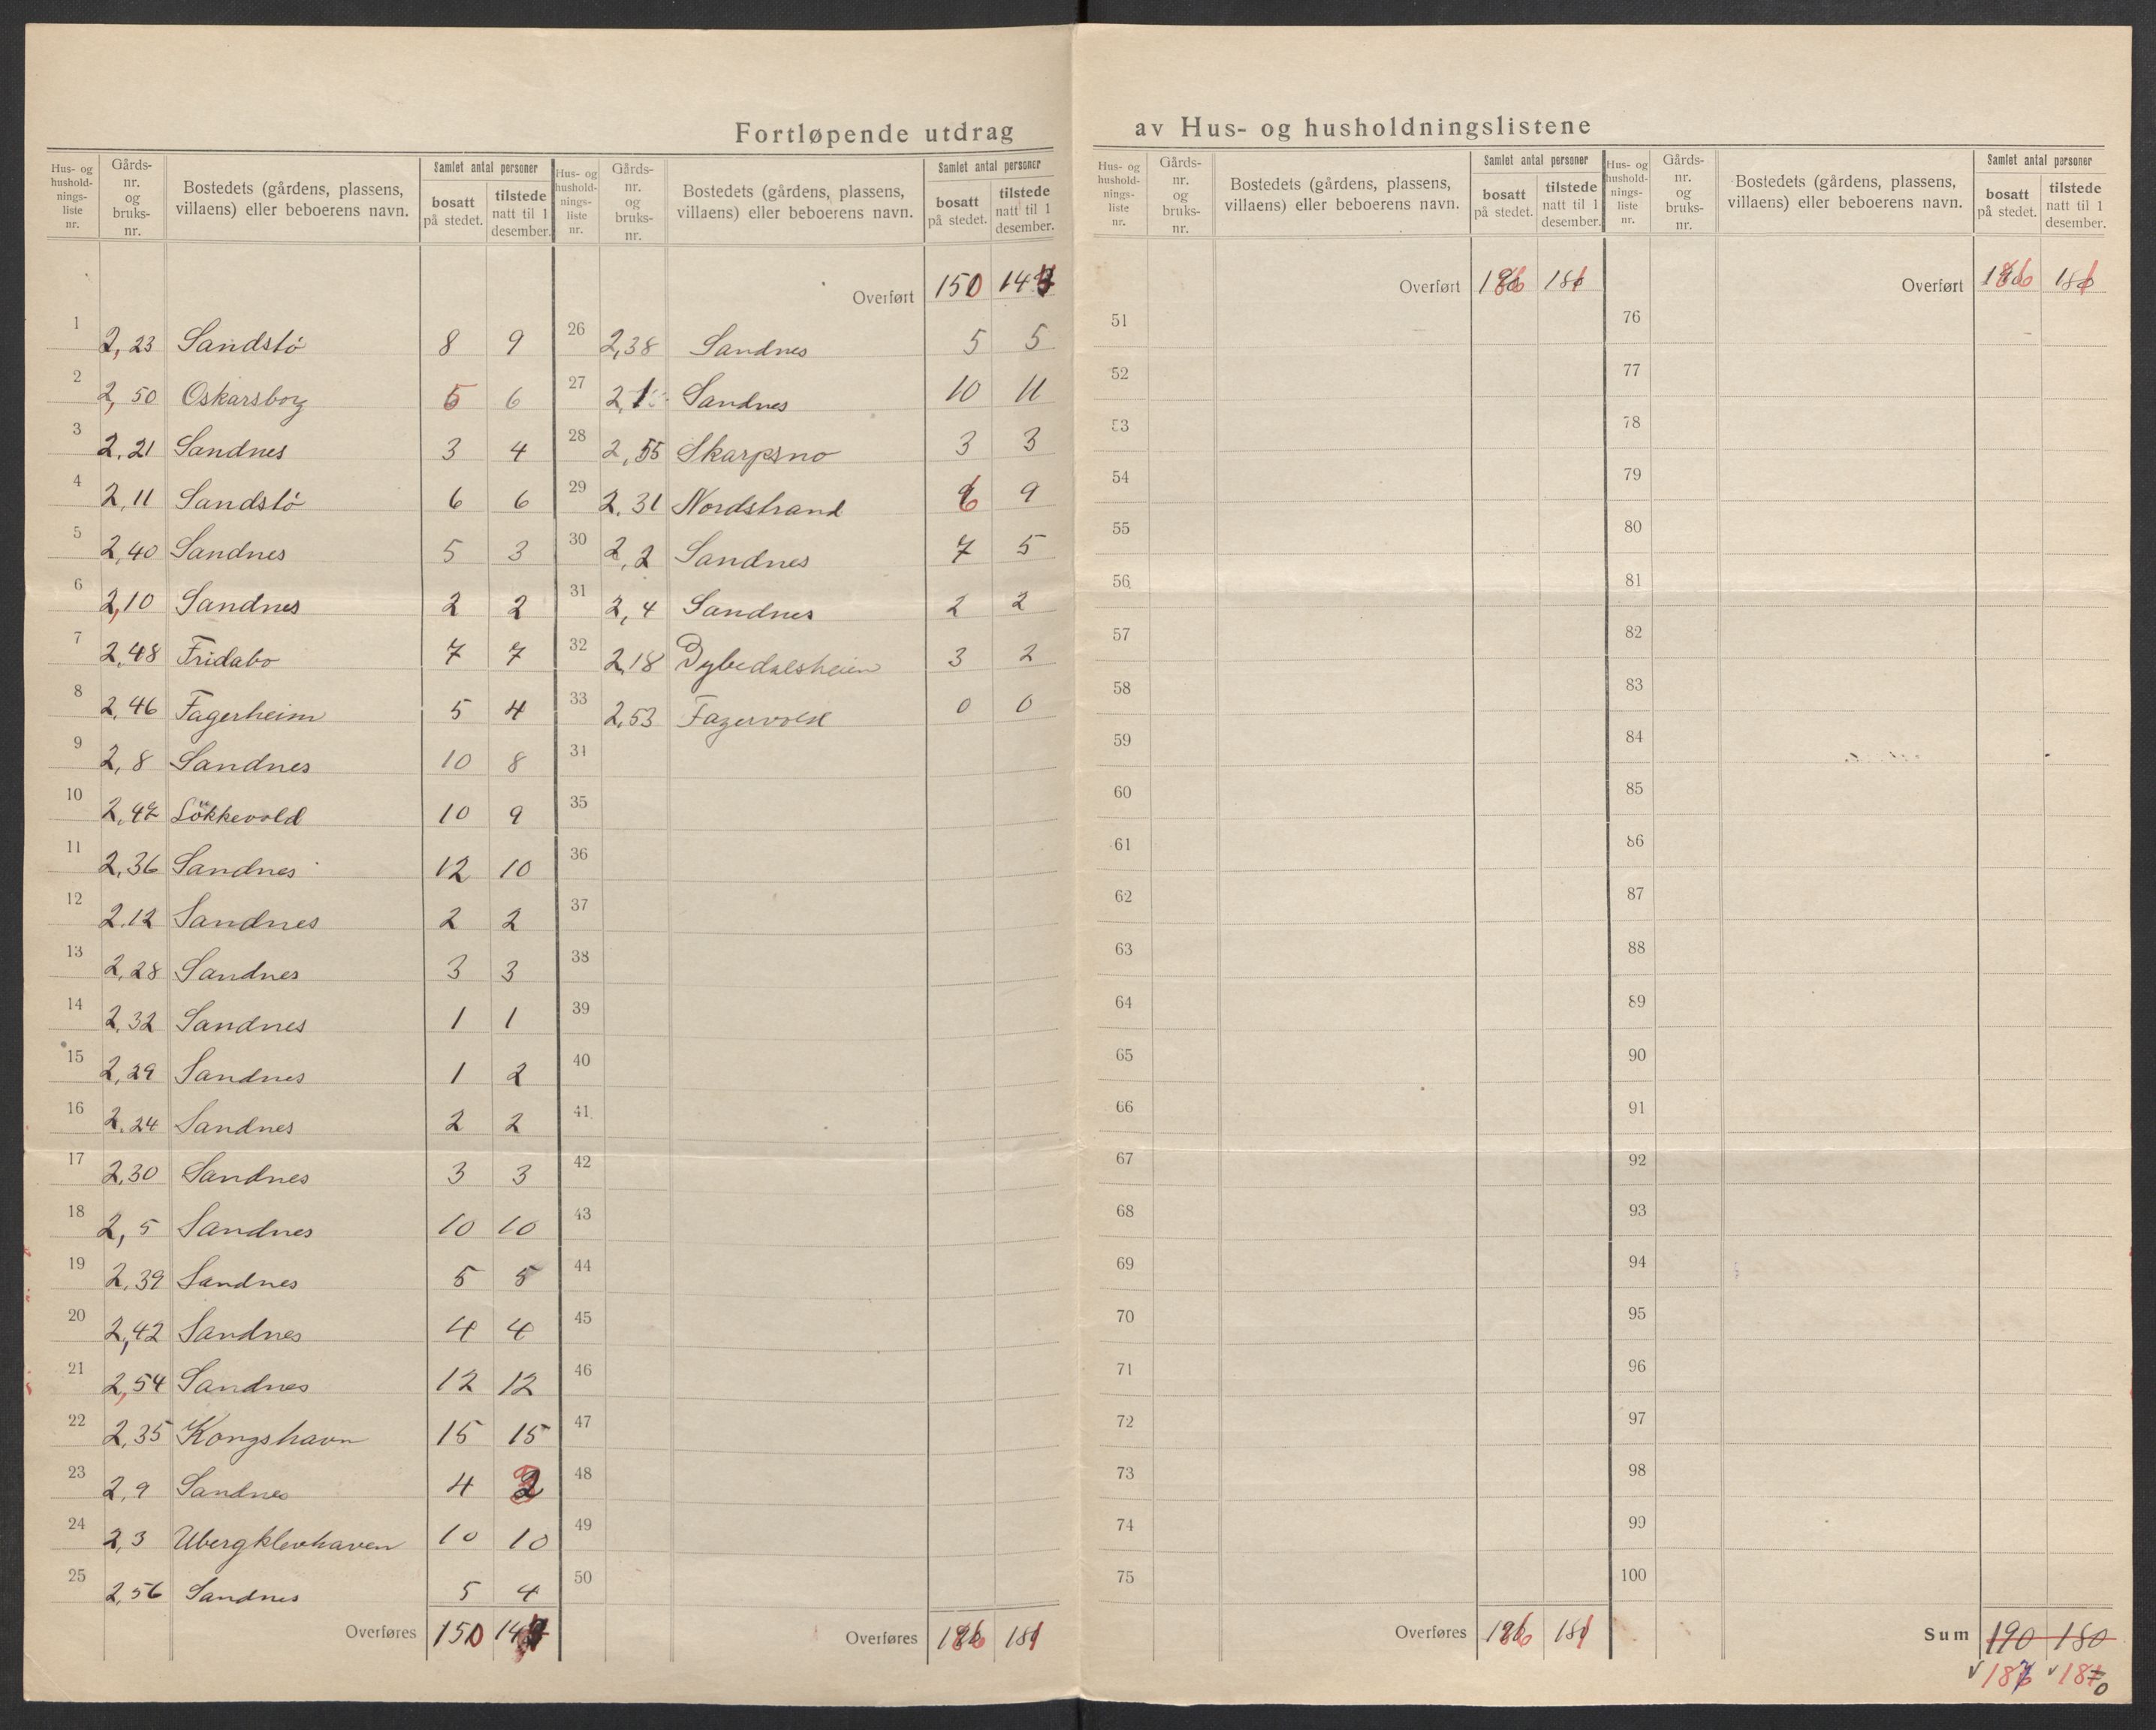 Fortløpende utdrag av Hus- og husholdningslistene
Hus- og hushold- nings- liste nr.
Gårds- nr. og bruks- nr.
Bostedets (gårdens, plassens, villaens) eller beboerens navn.
Samlet antal personer
bosatt på stedet.
tilstede natt til 1 desember.
1 2,23 Sandstö 8 9
2 2,50 Oskarsborg 5 6
3 2,21 Sandnes 3 4
4 2,11 Sandstö 6 6
5 2,40 Sandnes 5 3
6 2,10 Sandnes 2 2
7 2,48 Fridabo 7 7
8 2,46 Fagerheim 5 4
9 2,8 Sandnes 10 8
10 Lökkevold 10 9
11 2,36 Sandnes 12 10
12 2.12 Sandnes 2 2
13 2,28 Sandnes 3 3
14 2,32 Sandnes 1 1
15 2,29 Sandnes 1 2
16 2.24 Sandnes 2 2
17 2,30 Sandnes 3 3
18 2,5 Sandnes 10 10
19 2,39 Sandnes 5 5
20 2,42 Sandnes 4 4
21 2,54 Sandnes 12 12
22 2,35 Kongshavn 15 15
23 2,9 Sandnes 4 2
24 2,3 Ubergklevhaven 10 10
25 2,56 Sandnes 5 4
Overføres 150
Hus- og hushold- nings- liste nr.
Gårds- nr. og bruks- nr.
Bostedets (gårdens, plassens, villaens) eller beboerens navn.
Samlet antal personer
bosatt på stedet.
tilstede natt til 1 desember.
Overført 150
26 2,38 Sandnes 5 5
27 2,1 Sandnes 10 11
28 2,55 Skarpsno 3 3
29 2.31 Nordstrand 6 9
30 2,2 Sandnes 7 5
31 2,4 Sandnes 2 2
32 2,18 Dybedalsheien 3 2
33 2,53 Fagervold 0 0
34
35
36
37
38
39
40
41
42
43
44
45
46
47
48
49
50
Overføres 186 181
Hus- og hushold- nings- liste nr.
Gårds- nr. og bruks- nr.
Bostedets (gårdens, plassens, villaens) eller beboerens navn.
Samlet antal personer
bosatt på stedet.
tilstede natt til 1 desember.
Overført 186 181
51
52
53
54
55
56
57
58
59
60
61
62
63
64
65
66
67
68
69
70
71
72
73
74
75
Overføres 186 181
Hus- og hushold- nings- liste nr.
Gårds- nr. og bruks- nr.
Bostedets (gårdens, plassens, villaens) eller beboerens navn.
Samlet antal personer
bosatt på stedet.
tilstede natt til 1 desember.
Overført 186 181
76
77
78
79
80
81
82
83
84
85
86
87
88
89
90
91
92
93
94
95
96
97
98
99
100
Sum 190 180